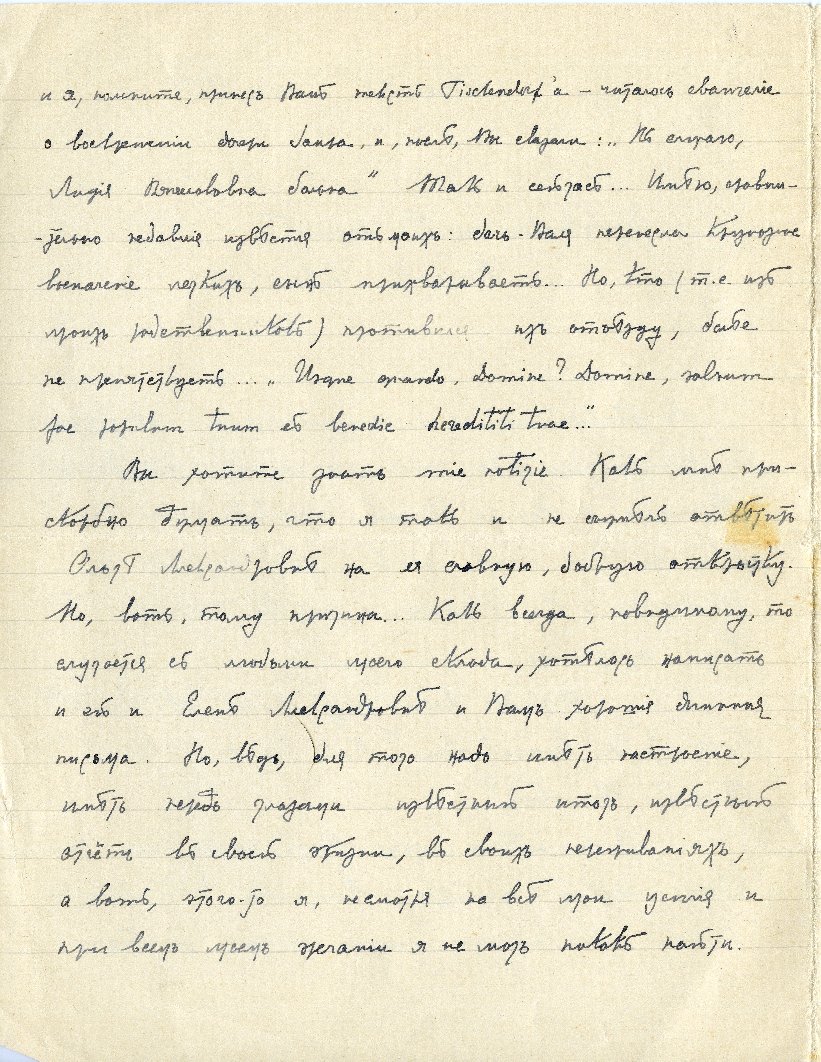 и я, помните, принесъ Вамъ текстъ Tischendorf'а – читалось евангелiе
о воскрешенiи дочери Iаира, и, послѣ, Вы сказали: „Къ случаю,
Лидiя Вячеславовна больна" Такъ и сейчасъ... Имѣю, сравни-
-тельно недавнiя извѣстiя отъ моихъ: дочь - Валя перенесла крупозное
воспаленiе легкихъ, сынъ прихварываетъ... Но, кто (т.е. изъ
моихъ родственниковъ) противился ихъ отъѣзду, болѣе
не препятствуетъ... „Usque quando, Domine? Domine, salvum
fac populum tuum et benedic hereditati tuae..."
Вы хотите знать mie notizie. Какъ мнѣ при-
скорбно думать, что я такъ и не сумѣлъ отвѣтить
Ольгѣ Александровнѣ на ея славную, добрую открытку.
Но, вотъ, тому причина... Какъ всегда, повидимому, то
случается съ людьми моего склада, хотѣлось написать
и ей и Еленѣ Александровнѣ и Вамъ хорошiя длинныя
письма. Но, вѣдь, для того надо имѣть настроенiе,
имѣть передъ глазами извѣстный итогъ, извѣстный
отчётъ въ своей жизни, въ своихъ переживанiяхъ,
а вотъ, этого-то я, несмотря на всѣ мои усилiя и
при всемъ моемъ желанiи я не могъ никакъ найти.